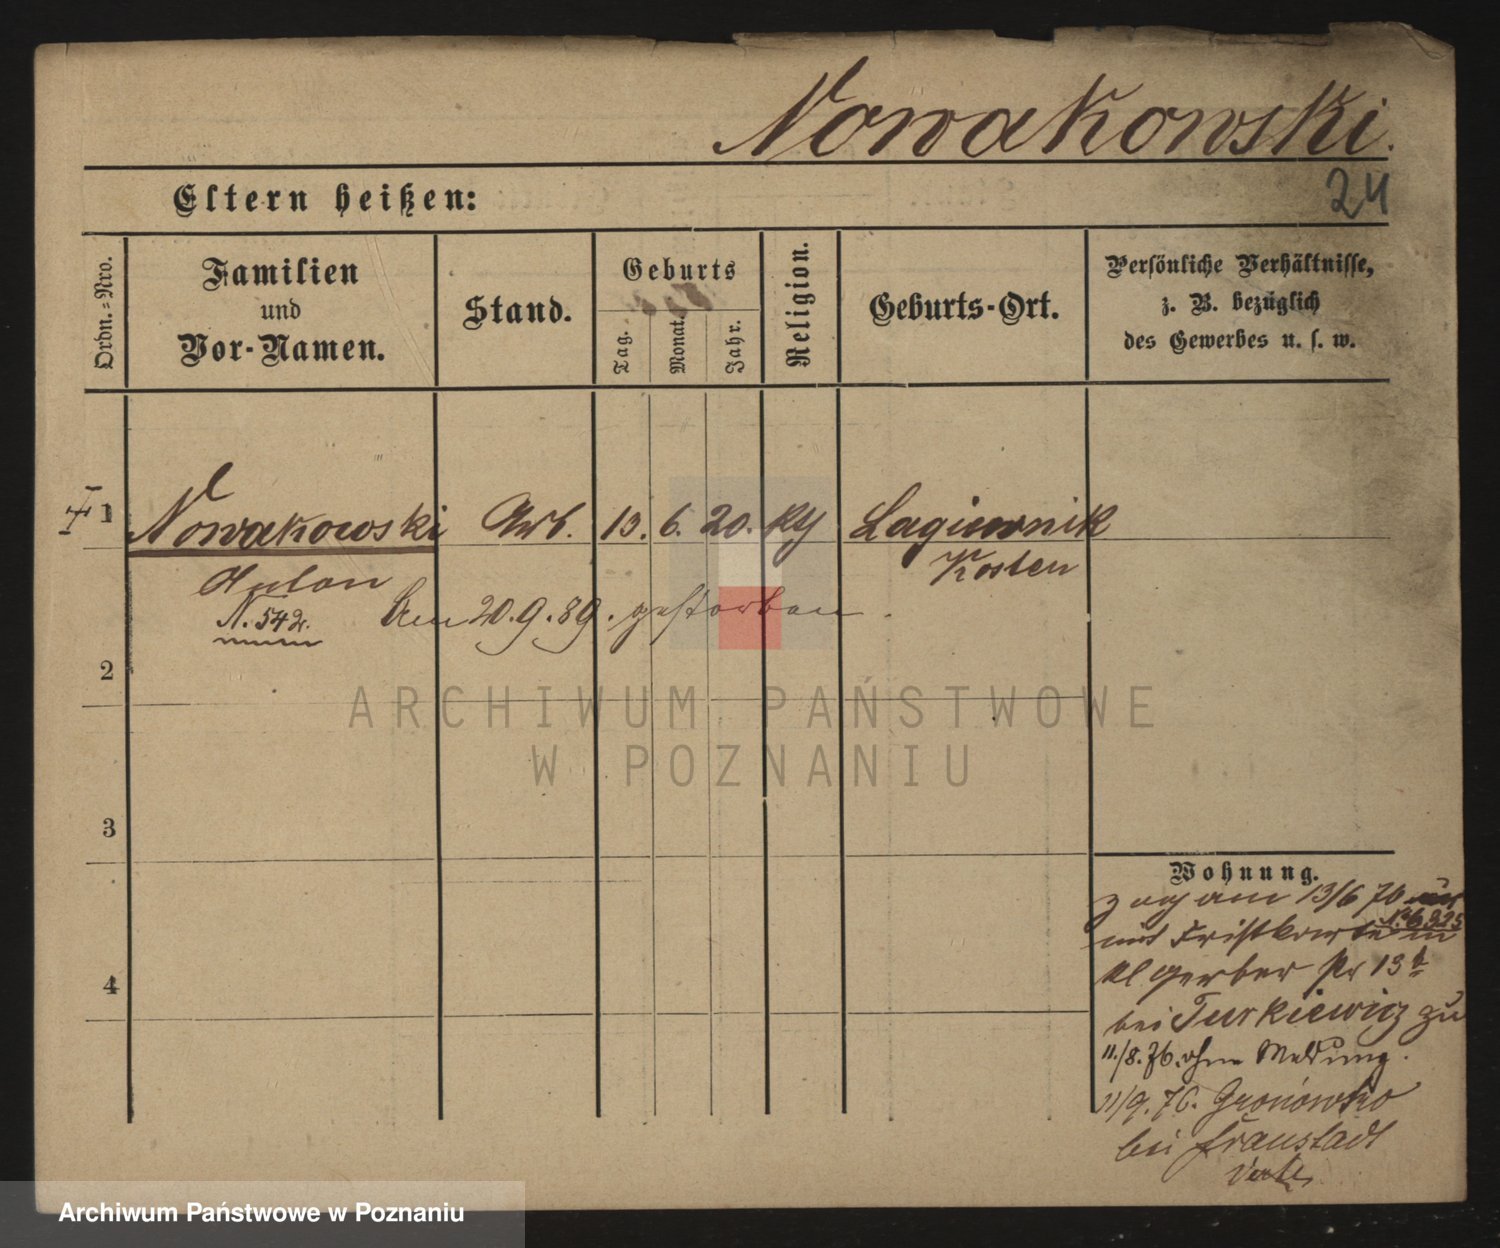 Nowakowski.
24
Eltern heißen:
Ordn.-Nro.
Familien
und
Vor-Namen.
Stand.
Geburts
Tag.
Monat.
Jahr.
Religion.
Geburts-Ort.
Persönliche Verhältnisse,
z. B. bezüglich
des Gewerbes u. s. w.
1 Nowakowski Arb. 13. 6. 20. Lagiewnik
Kosten
Anton
N. 542.
Am 20.9.89. gestorben.
2
3
4
Wohnung.
zog am 13/6 70
No 6925
mit Fristkarte
Kl Gerber 13
bei Turkiewicz zu
11./8.76. ohne Meldung.
11/9.76. Gronowko
bei Fraustadt
ARCHIWUM PAŃSTWOWE
W POZNANIU
Archiwum Państwowe w Poznaniu